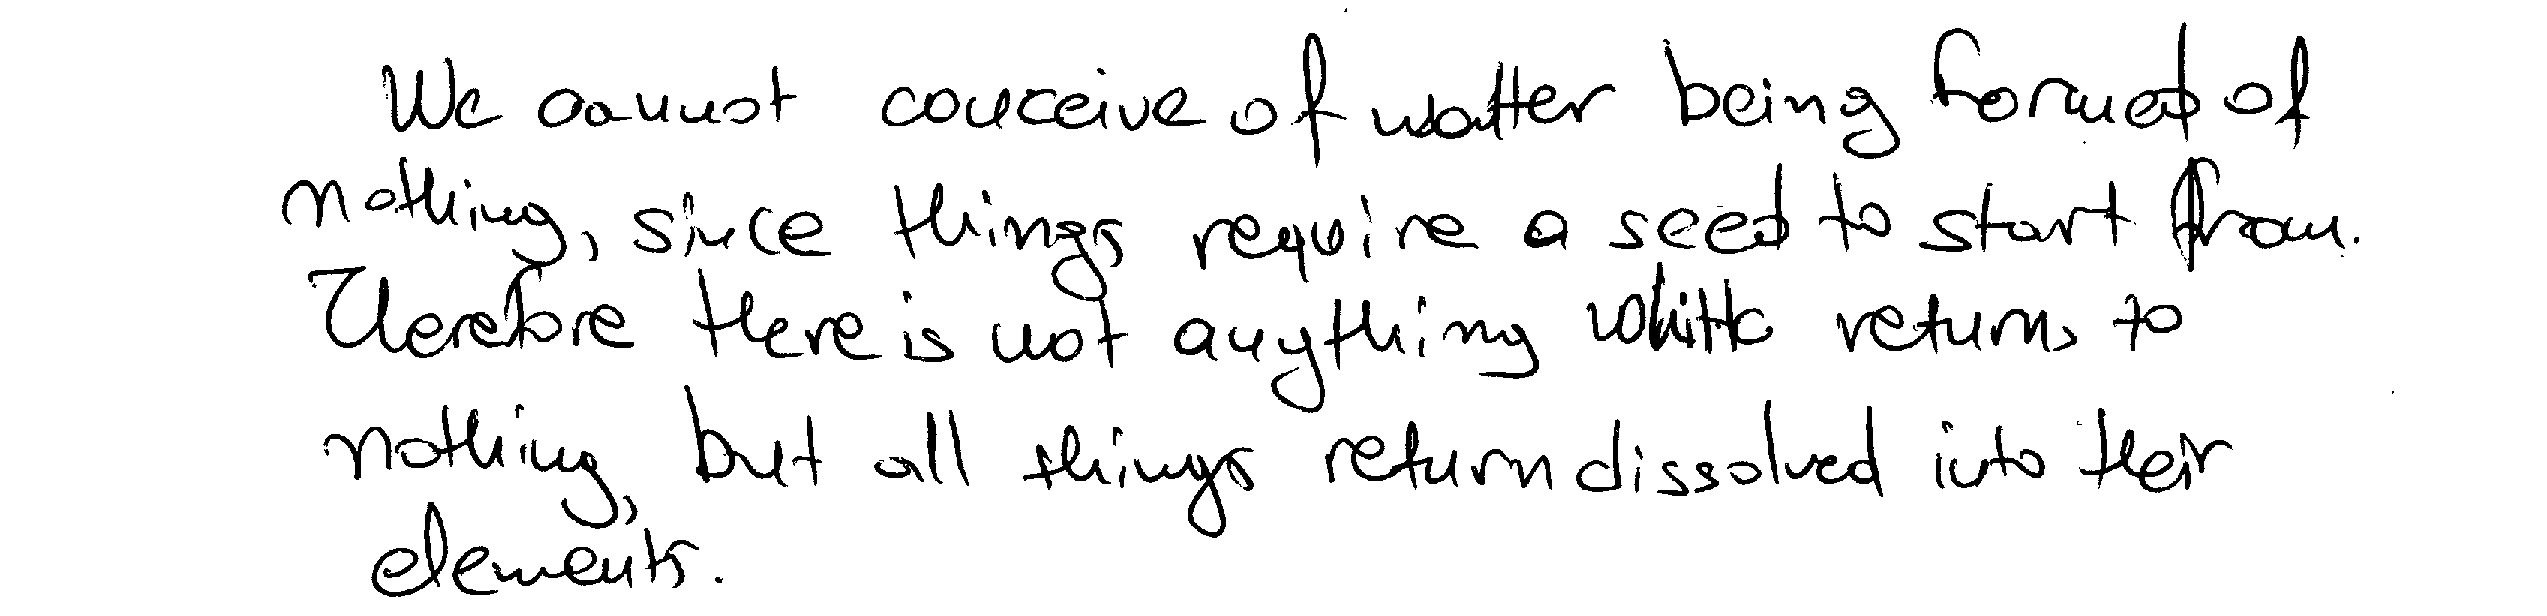 We cannot conceive of matter being formed of
nothing, since things require a seed to start from.
Therefore there is not anything which returns to
nothing, but all things return dissolved into their
elements.